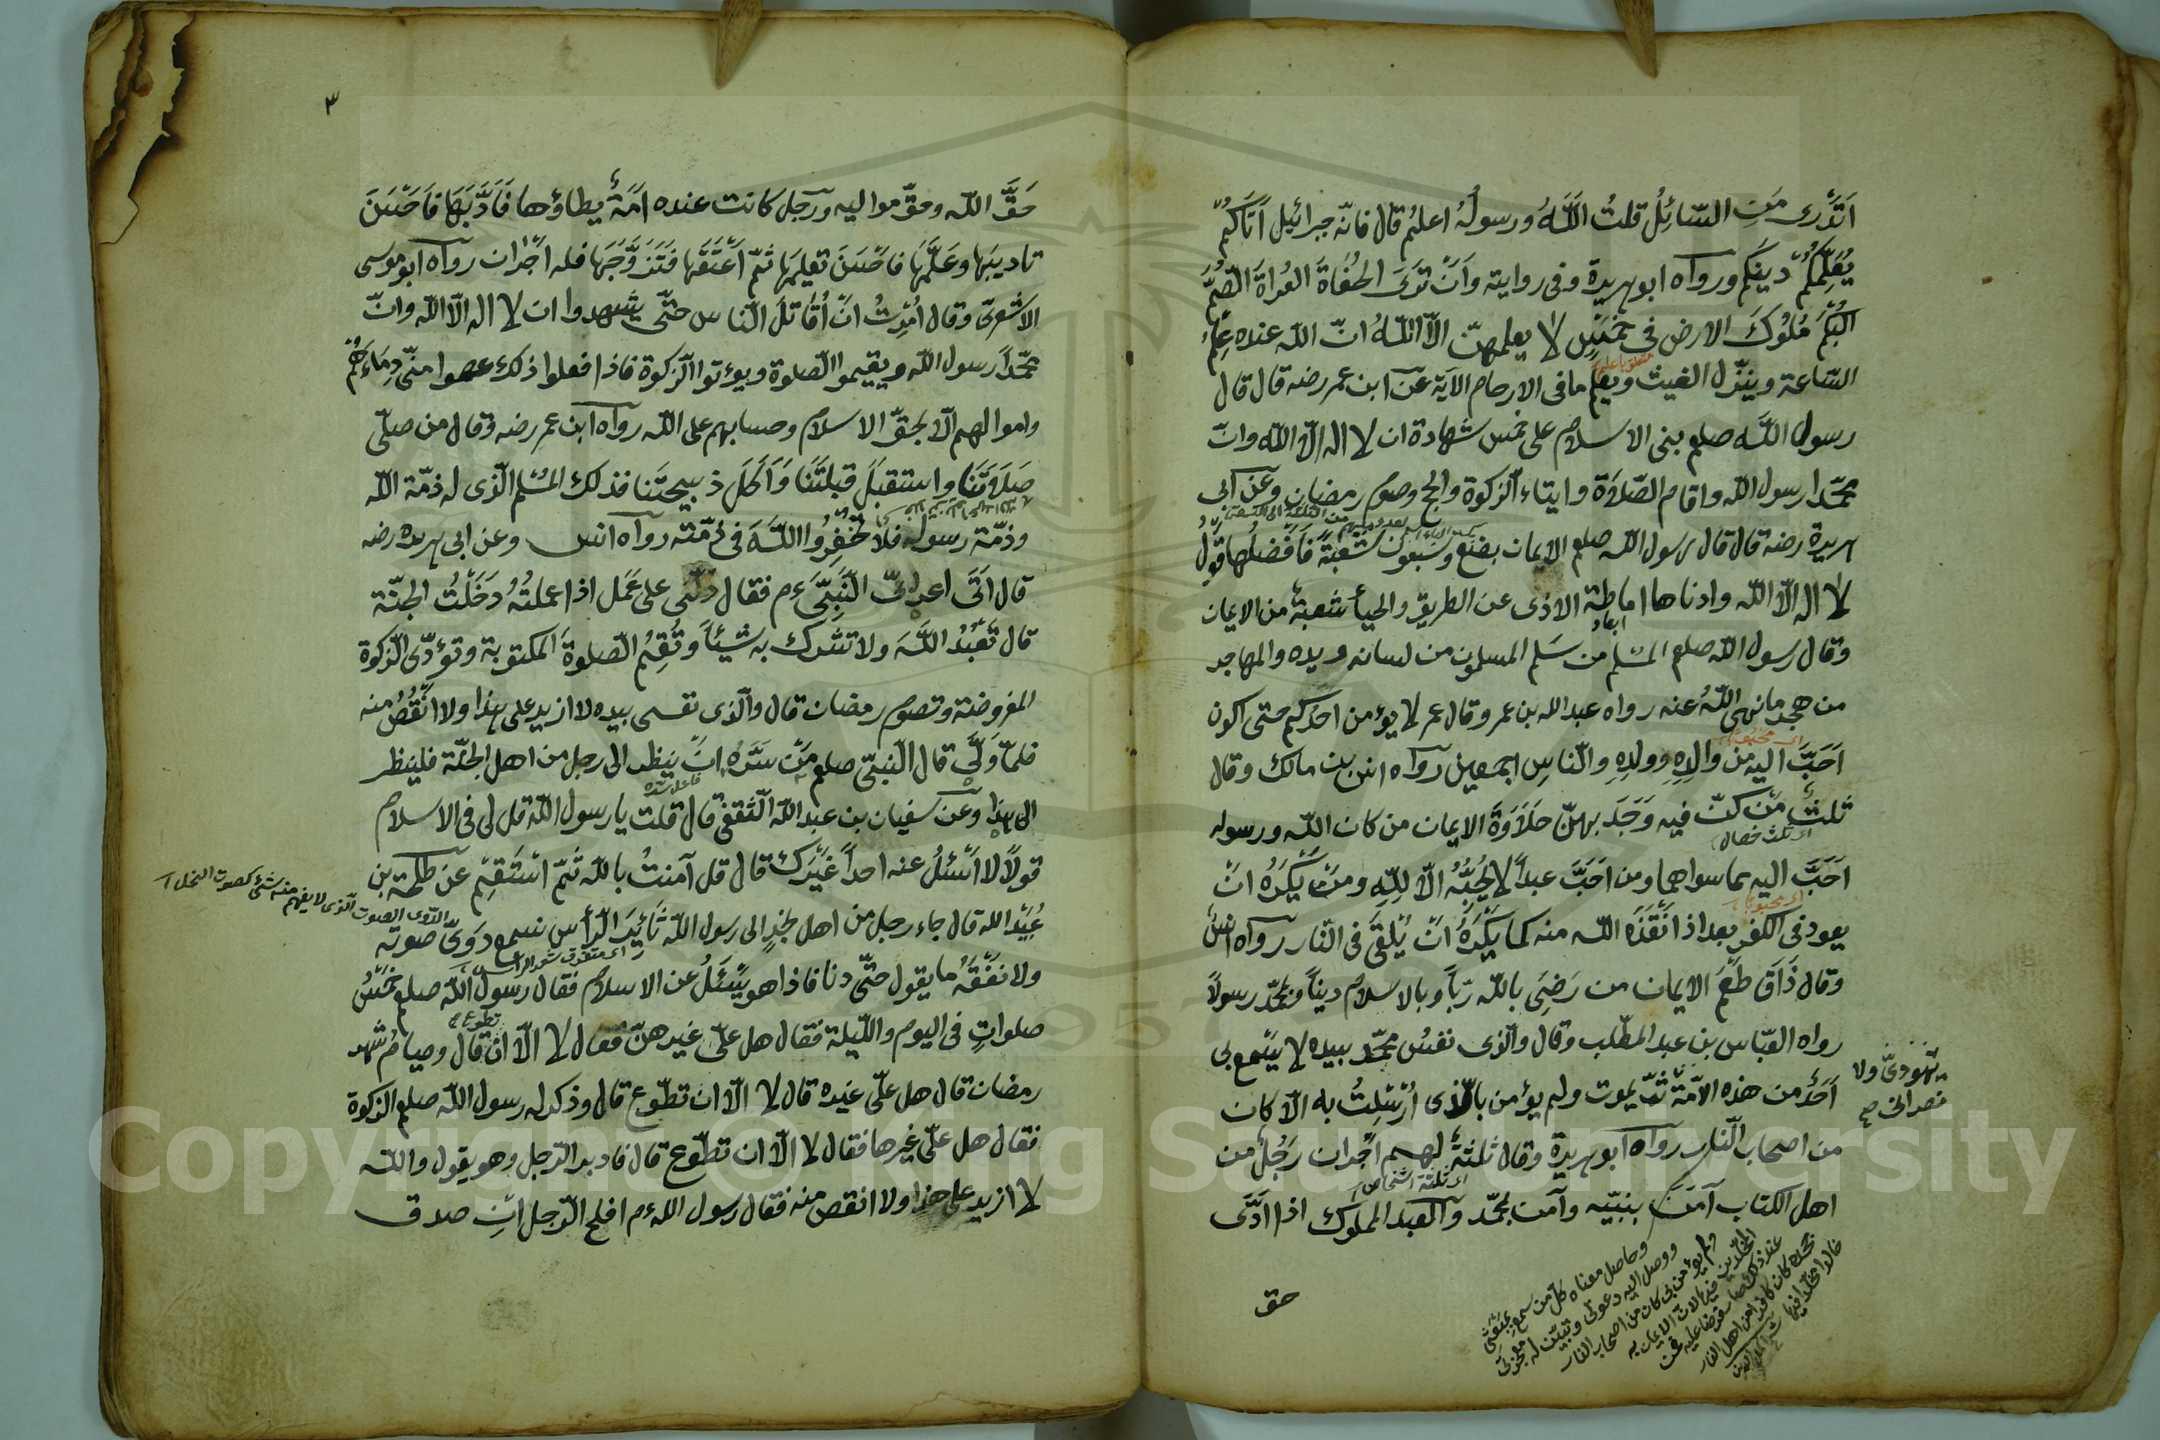 اَتَدْرى مَنِ السّائِلُ قلتُ اللّٰهُ ورسولُهُ اعلمُ قال فانّه جبرائيل اَتَاكُمْ
يُعَلِّمُكُمْ دينكم ورواه ابو هريرة وفى رواية وَاَنْ تَرَى الحُفَاةَ العُراةَ الصُّمَّ
البُكْمَ مُلُوكَ الارض فى خمسٍ لا يعلمهنّ الّا اللّٰهُ انّ اللّٰه عنده عِلمُ
السّاعة وينزّل الغيث ويعلم ما فى الارحام الاية عن ابن عمر رضه قال قال
رسول اللّٰه صلعم بنى الاسلام على خمس شهادة ان لا اله الّا اللّٰه وانّ
محمّدا رسول اللّٰه واقام الصّلاة وايتاء الزكوة والحج وصوم رمضان وعن ابى
هريرة رضه قال قال رسول اللّٰه صلعم الايمان بضع وسبعون شُعْبَةً فَاَفْضَلُها قَوْلُ
لا اله الّا اللّٰه وادناها اماطة الاذى عن الطريق والحيأ شعبة من الايمان
ابعاد
وقال رسول اللّٰه صلعم المسْلم من سَلم المسلمون من لسانه ويده والمهاجر
من هجر ما نهى اللّٰهُ عنه رواه عبد الله بن عمر وقال عم لا يؤمن احدكم حتى اكون
اَحَبَّ اليه من والِدِهِ وولدِهِ والنّاسِ اجمعين رواه انس بن مالك وقال
ثلثٌ مَنْ كنّ فيه وَجَدَ بهنّ حَلَاوَةَ الايمان من كان اللّٰه ورسوله
اى ثلث خصال
اَحَبَّ اليه مما سواهما ومن اَحَبَّ عبداً لا يُحِبُّهُ الّا لِلّٰهِ ومَنْ يَكْرَهُ انْ
يعود فى الكفر بعد اذ اَنْقَذَهُ اللّٰه منه كما يَكْرَهُ اَنْ يُلْقَى فى النّار رواه انس
وقال ذَاقَ طَعْمَ الايمان من رَضِىَ باللّٰه ربّاً وبالاسلام ديناً وبمحمّد رسولاً
رواه العبّاس بن عبد المطّلب وقال والّذى نفسُ محمّد بيده لا يَسْمع بى
اَحَدٌ من هذه الامّة ثمّ يموت ولم يؤمن بالّذى اُرْسِلتُ به الّا كان
يَهُودىّ ولا
نصرانى صح
من اصحاب النّار رواه ابو هريرة وقال ثلثةٌ لهم اجْران رَجُلٌ من
اى ثلثة اشخاص
اهل الكتاب آمَنَ بنبيّه وآمن بمحمّد والعبد المملوك اذا ادَّى
وحاصل معناه كل من سمع بمبعثى
ووصل اليه دعوتى وتبيّن له معجزتى
ولم يؤمن بى كان من اصحاب النار
حق
٣
حَقَّ اللّٰه وحقّ مواليه ورجل كانت عنده اَمَةٌ يطاؤها فَاَدَّبَهَا فاَحْسَنَ
تاديبَها وعَلَّمَهَا فاحْسَنَ تعليمَها ثمّ اَعْتَقَها فَتَزَوَّجَها فله اجْران رواه ابو موسى
الاشعرىّ وقال اُمِرْتُ انْ اُقاتلَ النّاس حتّى يشهدوا ان لا اله الّا اللّٰه وانّ
محمّداً رسول اللّٰه ويقيموا الصّلوة ويؤتوا الزكوة فاذا فعلوا ذلك عصموا منّى دِمَاءَهُمْ
واموالهم الّا بحقّ الاسلام وحسابهم على اللّٰه رواه ابن عمر رضه وقال من صلّى
صَلَاتَنَا واستقبَلَ قبلَتَنَا وَاَكَلَ ذبيحتَنا فذلك المُسْلم الّذى له ذمّة اللّٰه
وذمّة رسوله فلا تُخْفِرُوا اللّٰهَ فى ذمّته رواه انس وعن ابى هريره رضه
قال اَتَى اعرابىّ النَّبِىَّ ءم فقال دلّنى على عَمَل اذا عملتُهُ دَخَلْتُ الجنّة
قال تَعْبُدُ اللّٰهَ ولا تشرك به شيئاً وتُقِيْمُ الصّلوةَ المكتوبة وتؤدّى الزكوة
المفروضة وتصوم رمضان قال والّذى نفسى بيده لا ازيد على هذا ولا انْقُصُ منه
فلمّا وَلَّى قال النبىّ صلعم مَنْ سَرَّهُ انْ يَنظر الى رجل من اهل الجنّة فلينظر
فاعل سره
الى هذا وعن سفيان بن عبد اللّٰه الثّقفى قال قلت يا رسول اللّٰه قل لى فى الاسلام
قولاً لا اَسْئلُ عنه احداً غيْرك قال قل آمنتُ باللّٰه ثمّ اسْتَقِمْ عن طلحة بن
الدّوى الصوت الذى لا يفهم منه شئ كصوت النحل
عُبَيْد الله قال جاء رجل من اهل نجدٍ الى رسول اللّٰه ثَائِرَ الرّأسِ نسمع دَوِىّ صوته
اى متفرق شعر الرأس
ولا نَفْقَهُ ما يقول حتّى دنا فاذا هو يَسْئَلُ عن الاسلام فقال رسول اللّٰه صلعم خَمْسُ
صلواتٍ فى اليوم واللّيلة فقال هل علىّ غيرهنّ فقال لا الّا ان تطّوع قال وصيامُ شهر
رمضان قال هل علىّ غيره قال لا الّا ان تطّوع قال وذكر له رسول اللّٰه صلعم الزكوة
فقال هل علىّ غيرها فقال لا الّا ان تطّوع قال فادبر الرّجل وهو يقول واللّٰه
لا ازيد على هذا ولا انقص منه فقال رسول الله ءم افلح الرّجل اِنْ صدق
Copyright © King Saud University
1957